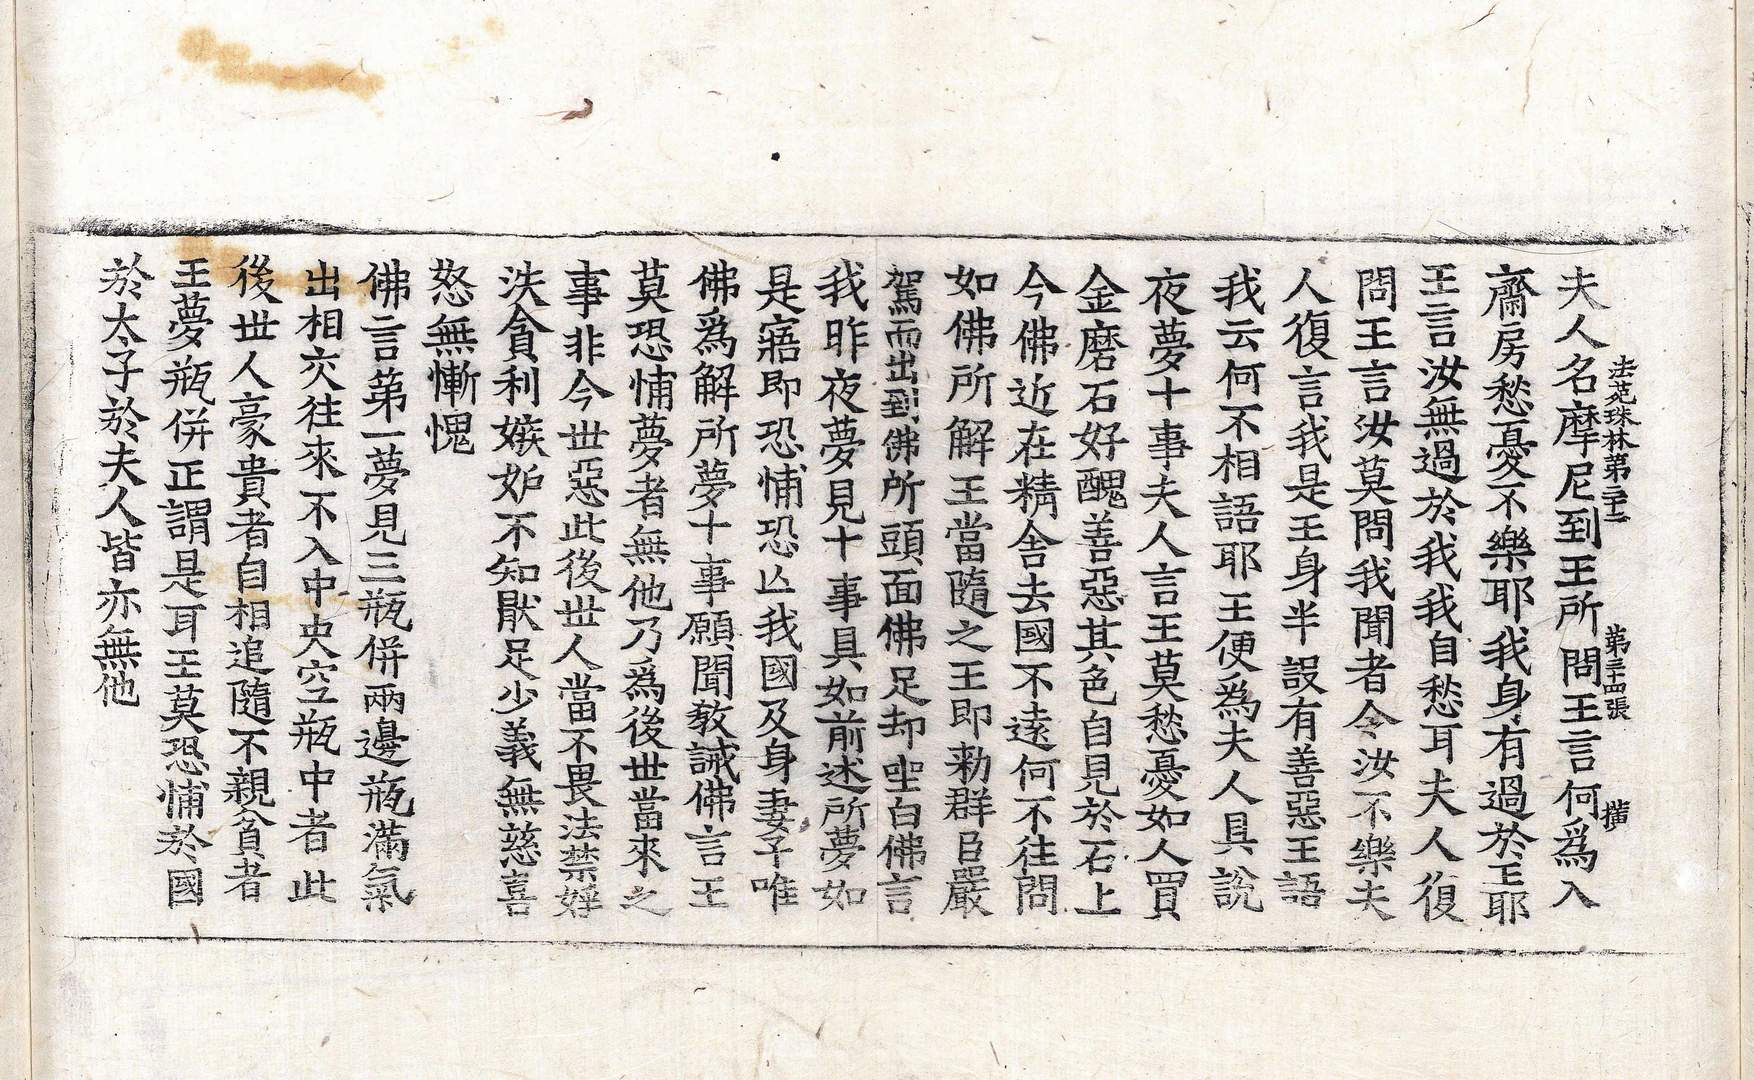 法苑珠林第三十二 第三十四張 横
夫人名摩尼到王所問王言何爲入
齋房愁憂不樂耶我身有過於王耶
王言汝無過於我我自愁耳夫人復
問王言汝莫問我聞者令汝不樂夫
人復言我是王身半設有善惡王語
我云何不相語耶王便爲夫人具說
夜夢十事夫人言王莫愁憂如人買
金磨石好醜善惡其色自見於石上
今佛近在精舍去國不遠何不往問
如佛所解王當隨之王即勑群臣嚴
駕而出到佛所頭面佛足却坐白佛言
我昨夜夢見十事具如前述所夢如
是寤即恐怖恐亡我國及身妻子唯
佛爲解所夢十事願聞教誡佛言王
莫恐怖夢者無他乃爲後世當來之
事非今世惡此後世人當不畏法禁婬
泆貪利嫉妬不知猒足少義無慈喜
怒無慚愧
佛言第一夢見三瓶併兩邊瓶滿氣
出相交往來不入中央空瓶中者此
後世人豪貴者自相追隨不親貧者
王夢瓶併正謂是耳王莫恐怖於國
於太子於夫人皆亦無他